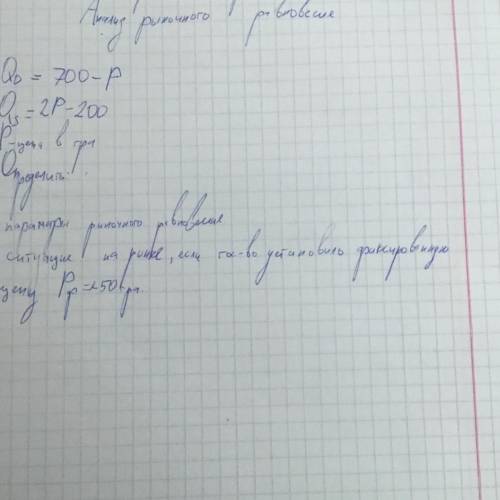 Анализ рыночного равновесия
QD = 700-P
QS = 2P-200
P-цена в грн
Определить:
параметры рыночного равновесия
ситуацию на рынке, если гос-во установило фиксированную
цену Pф=250грн.